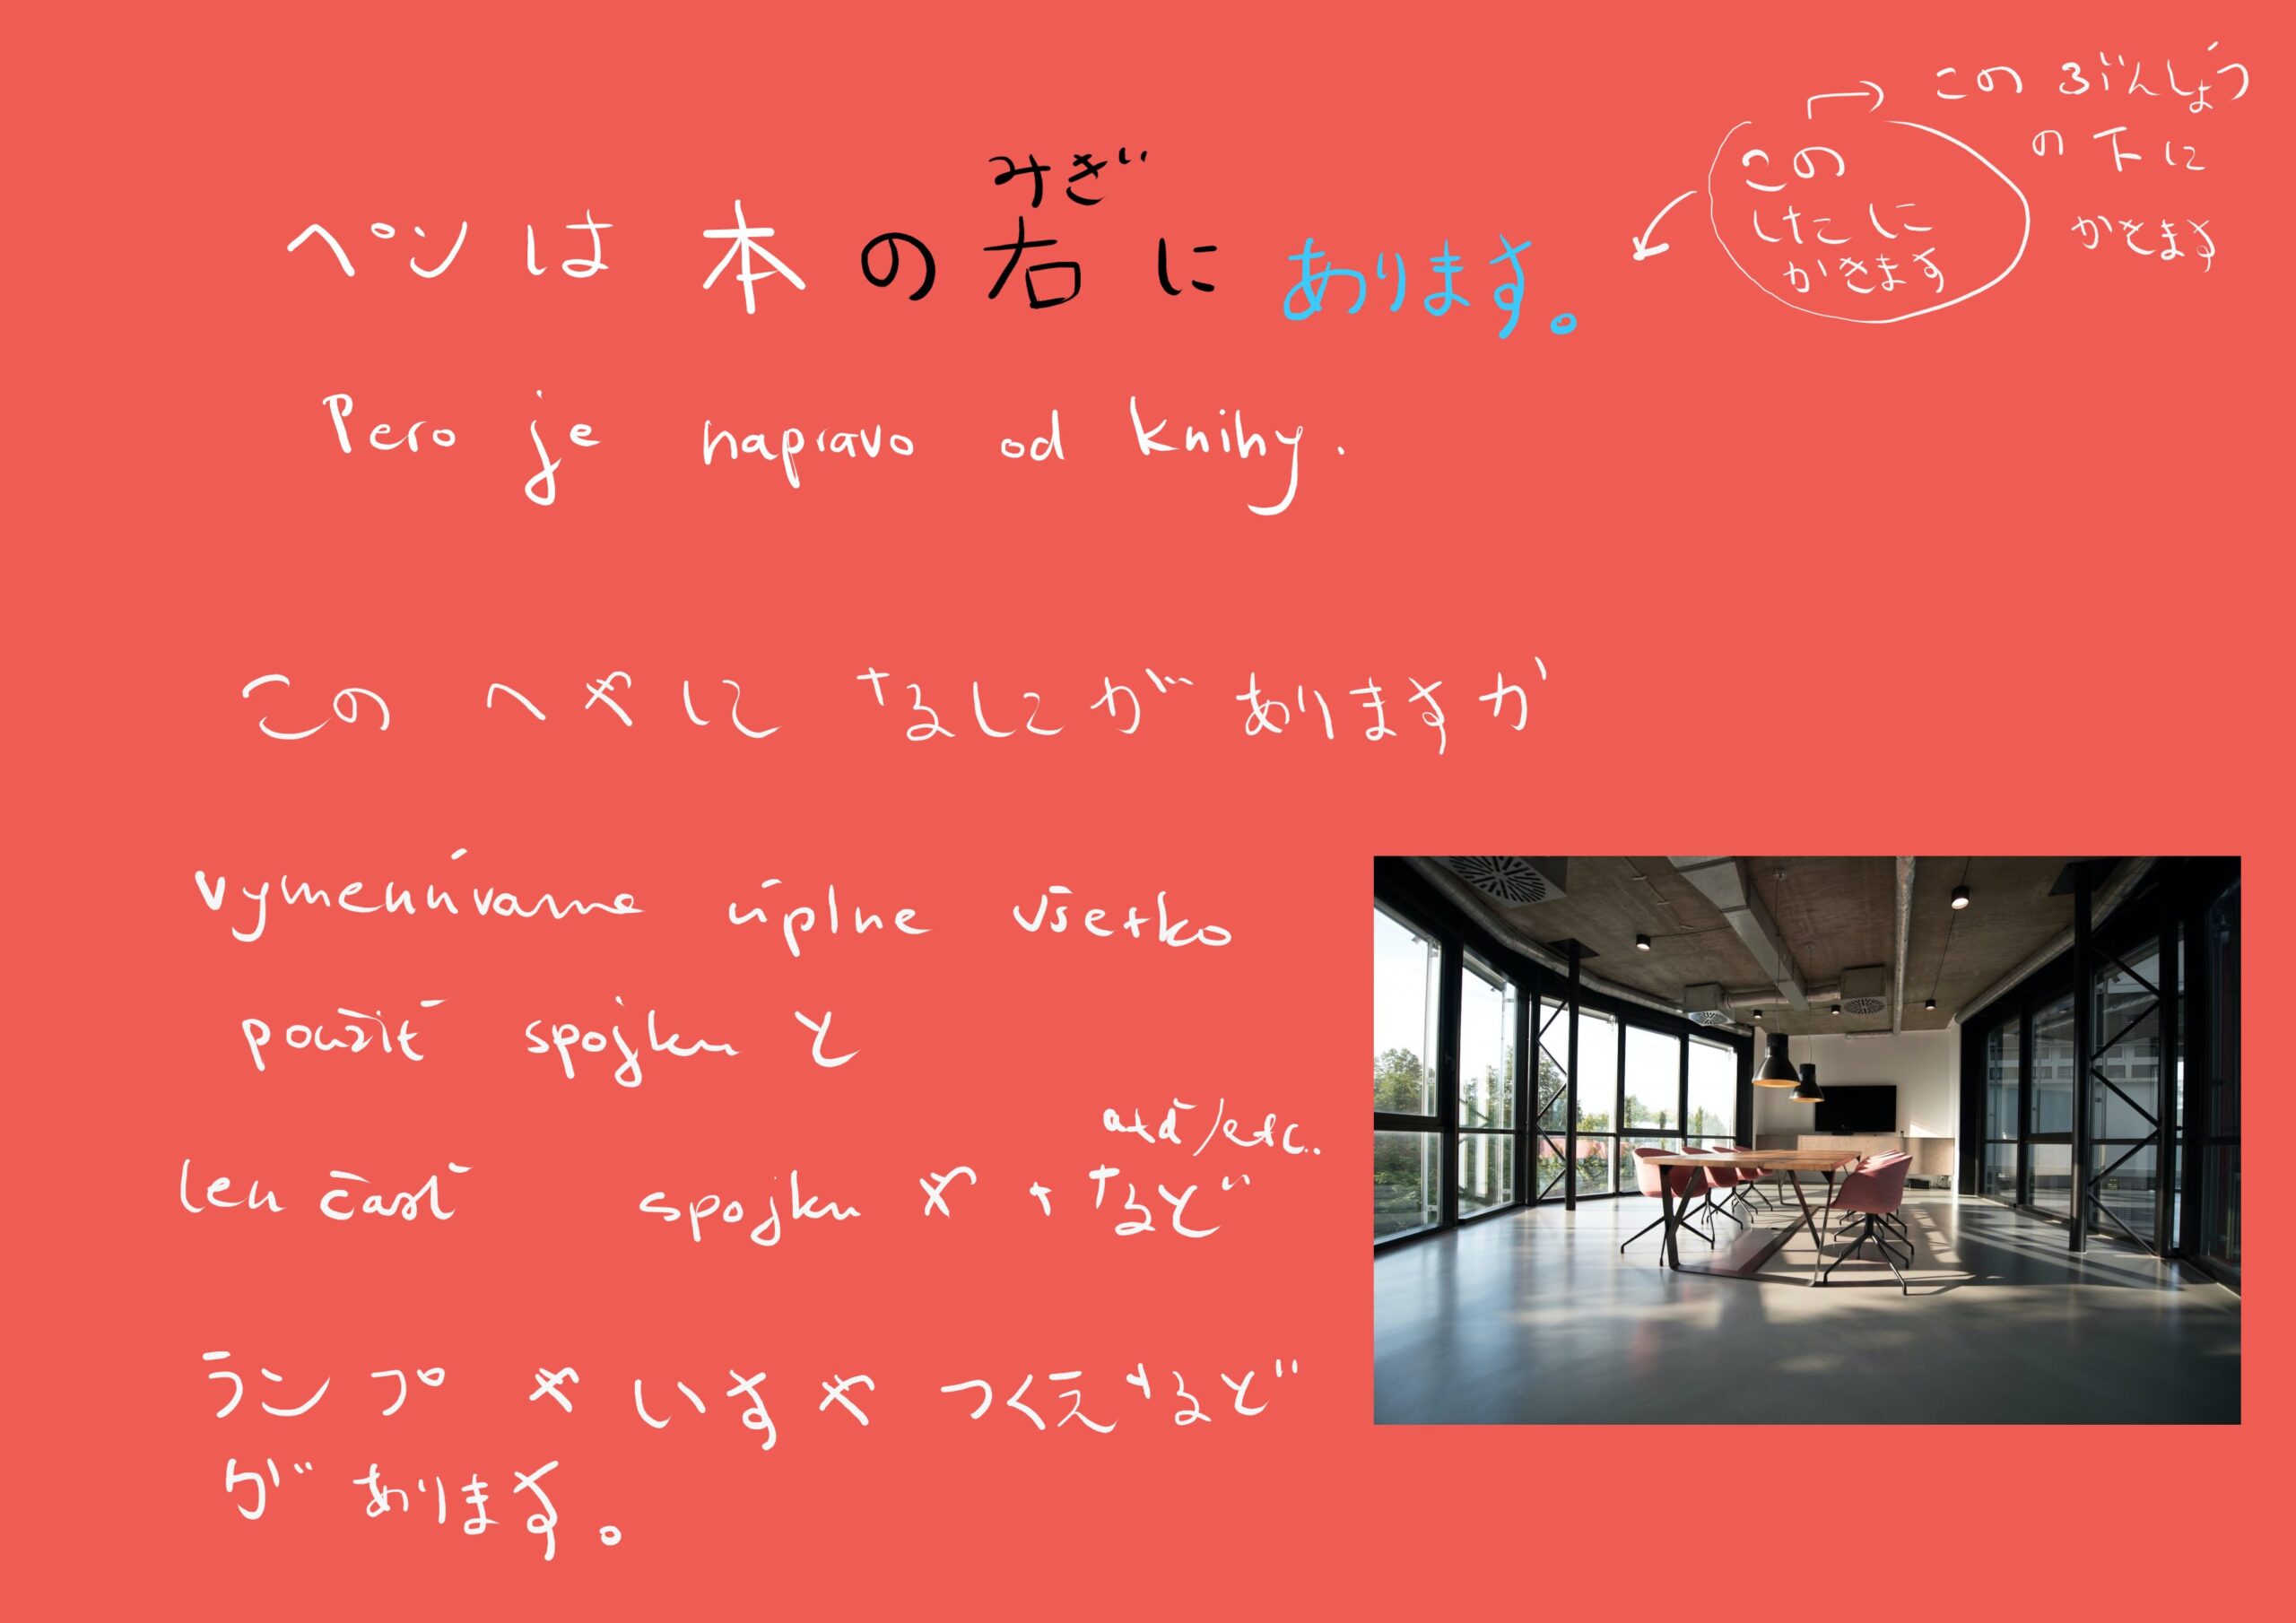 このぶんしょう
の下に
かきます
この
したに
かきます
みぎ
ペンは本の右にあります。
Pero je napravo od knihy.
このへやになにがありますか
vymenúvame úplne všetko
použiť spojku と
atď/etc..
len časť spojku や + など
ランプやいすやつくえなど
があります。